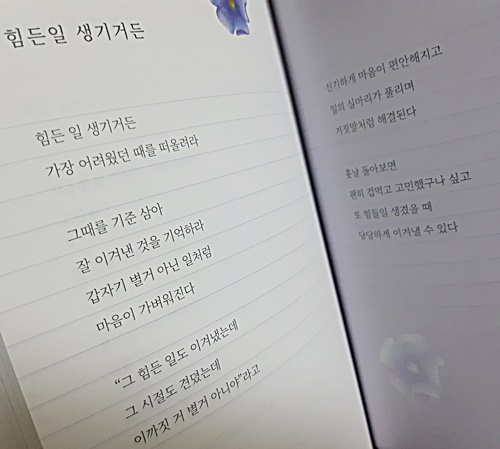 힘든일 생기거든
힘든 일 생기거든
가장 어려웠던 때를 떠올려라
그때를 기준 삼아
잘 이겨낸 것을 기억하라
갑자기 별거 아닌 일처럼
마음이 가벼워진다
“그 힘든 일도 이겨냈는데
그 시절도 견뎠는데
이까짓 거 별거 아니야”라고
신기하게 마음이 편안해지고
일의 실마리가 풀리며
거짓말처럼 해결된다
훗날 돌아보면
괜히 겁먹고 고민했구나 싶고
또 힘들일 생겼을 때
담담하게 이겨낼 수 있다